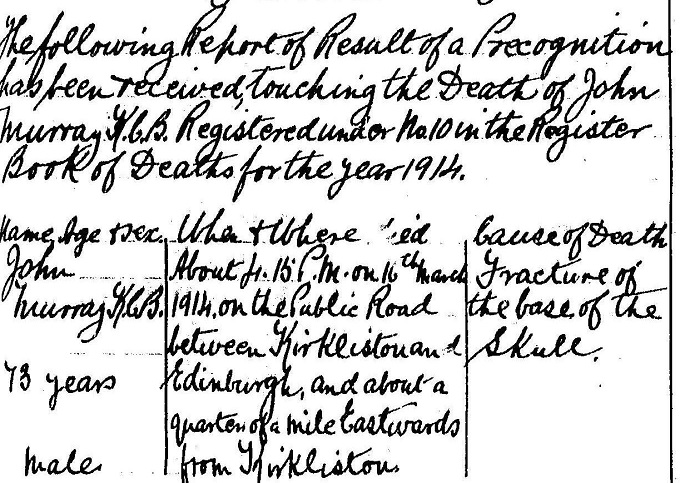 The following Report of Result of a Precognition
has been received, touching the Death of John
Murray K.C.B. Registered under No. 10 in the Register
Book of Deaths for the year 1914.
Name, Age & Sex.
John
Murray K.C.B.
73 years
Male
When & Where Died
About 4.15 P.M. on 16th March
1914. on the Public Road
between Kirkliston and
Edinburgh, and about a
quarter of a mile Eastwards
from Kirkliston.
Cause of Death
Fracture of
the base of the
Skull.